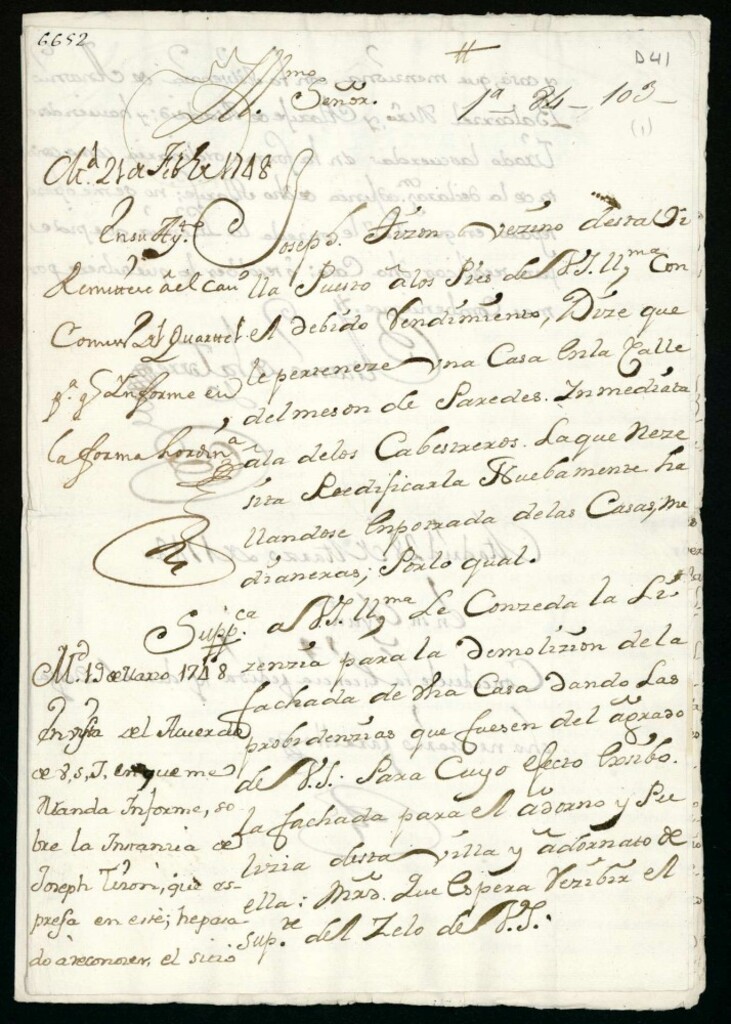 6652
#
D41
Il.mo Señor.
1ª - 84 - 103 -
(1)
M.d 21 de Feb.o de 1748
En su Ay.to
Remitese a el Cav.o
Comis.o del Quartel
p.a q.e Informe en
la forma hordin.a
Joseph. Tizon vezino desta Vi
lla Puesto a los Pies de V.S. Ill.ma Con
el debido Rendimiento, Dize que
le perteneze una Casa En la Calle
del meson de Paredes. Inmediata
a la de los Cabestreros. La que Neze
sita Reedificarla Nuebamente ha
llandose Enporrada de las Casas, me
dianeras; Por lo qual.
Supp.ca a V.S. Ill.ma Le Conzeda la Li
zenzia para la Demolizion de la
fachada de dha Casa Dando Las
probidenzias que fuesen del agrado
de V.S. Para Cuyo efecto Exsibo.
la fachada para el adorno y Pu
lizia desta villa y adornato de
ella: Mrd. Que Espera Rezibir el
sup.te del Zelo de V.S.
M.d 19 de Marzo 1748
En vista del Acuerdo
de V, S, I, en que me
Manda Informe, so
bre la Instancia de
Joseph Tizon, que es-
presa en este; he pasa
do à reconozer, el sitio